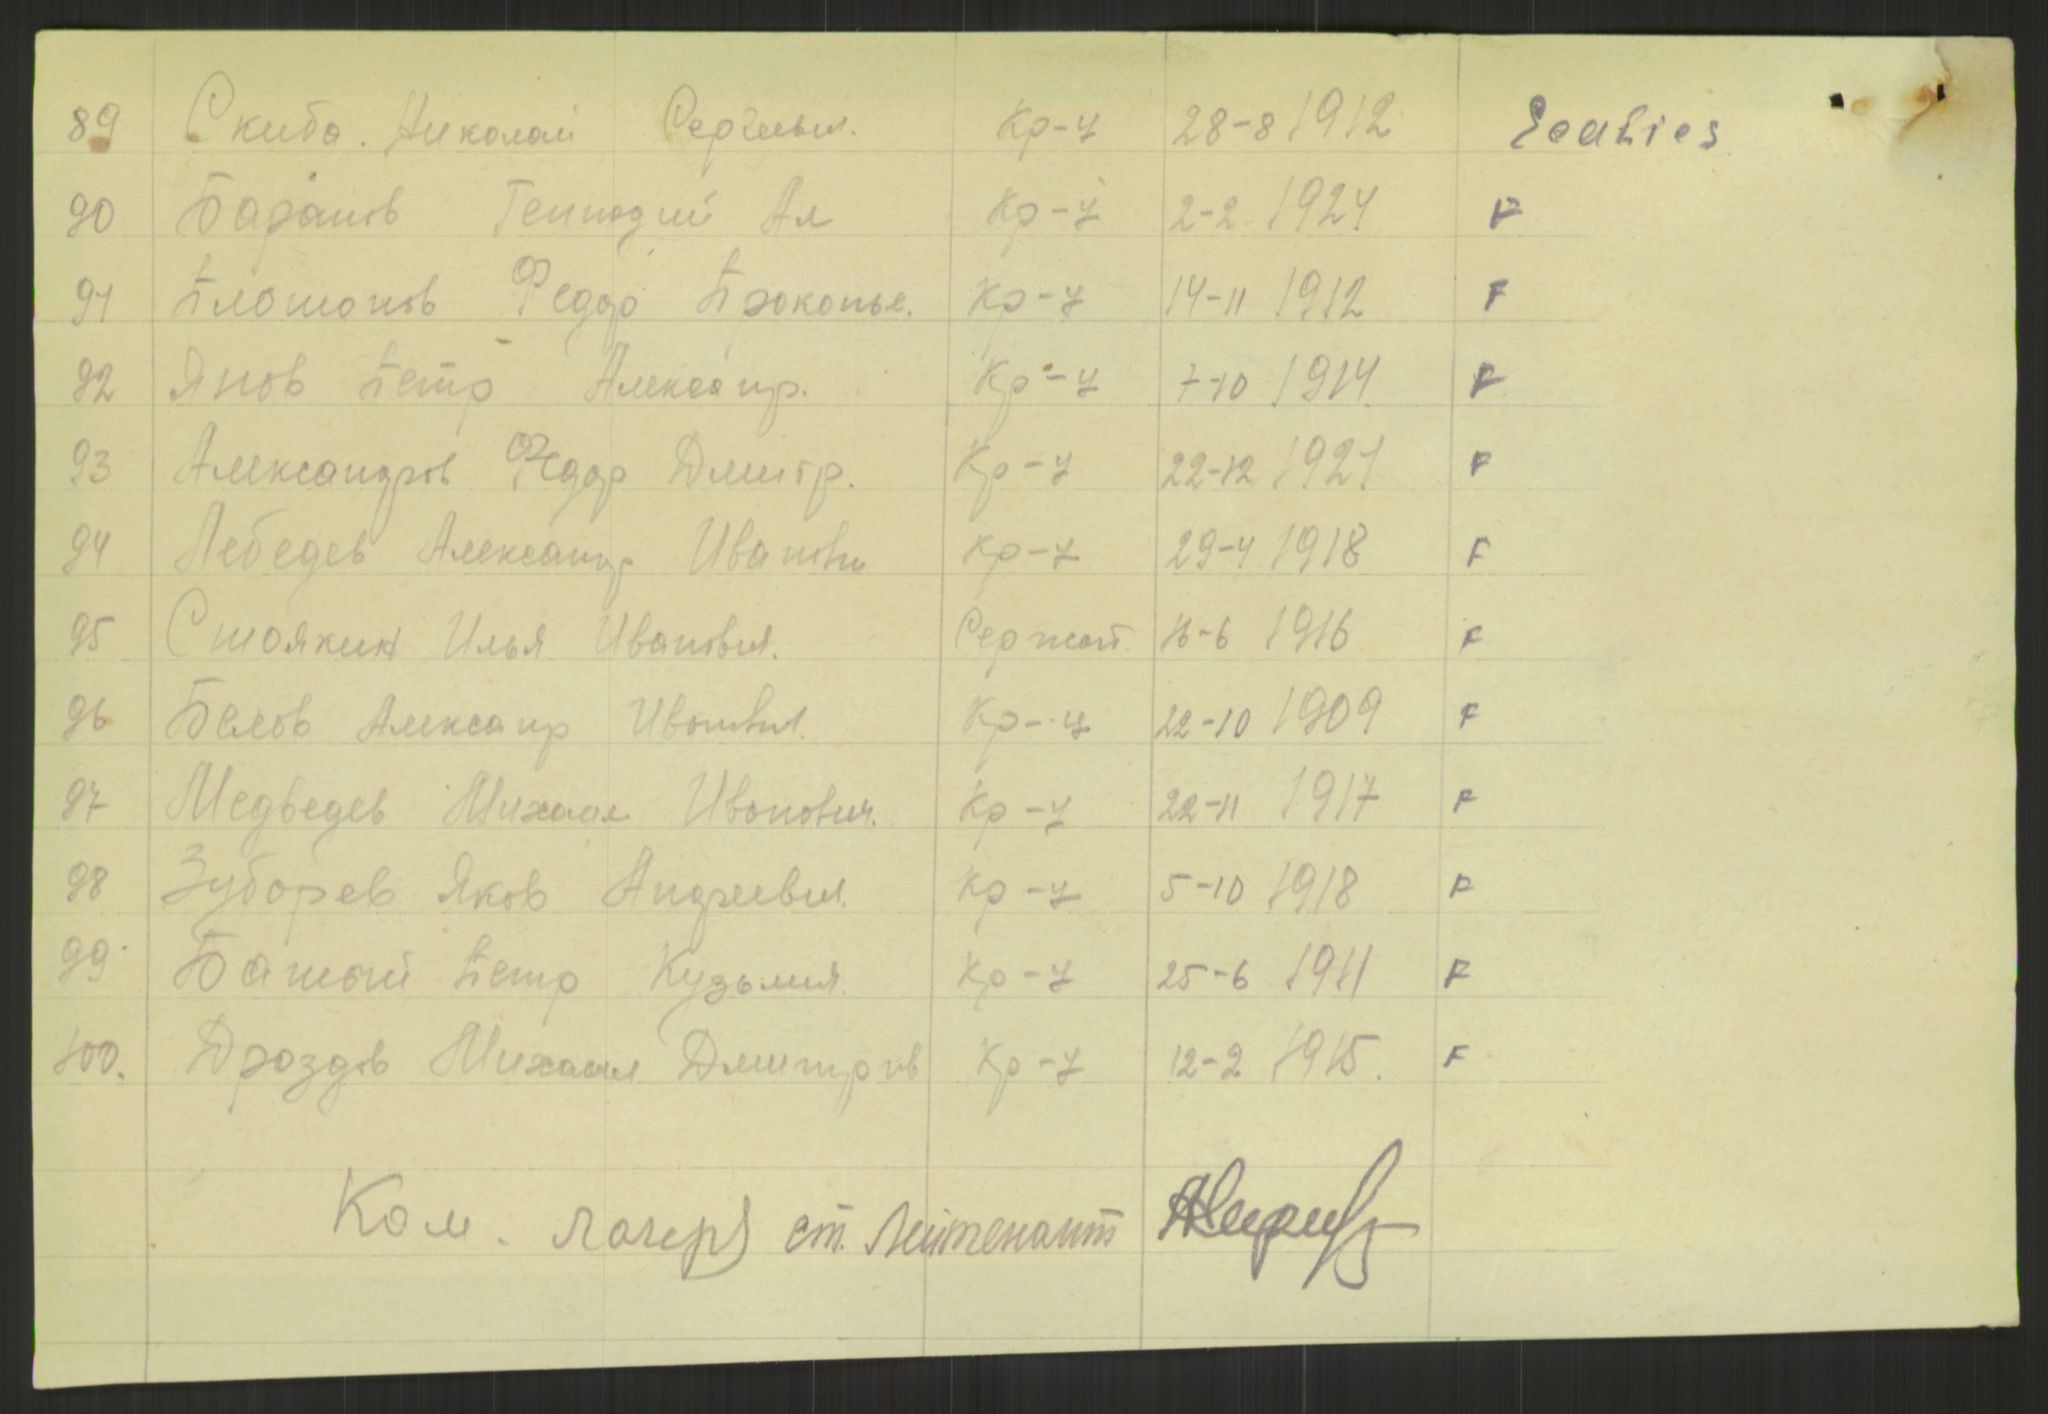 89 Скиба. Николай Сергеевич. Кр-ц 28-8 1912
90 Баранов Геннадий Ал Кр-ц 2-2 1924 F
91 Платонов Федор Прокопье. Кр-ц 14-11 1912 F
92 Янов Петр Александр. Кр-ц 7-10 1914 F
93 Александров Федор Дмитр. Кр-ц 22-12 1921 F
94 Лебедев Александр Иванович Кр-ц 29-4 1918 F
95 Стоякин Илья Иванович. Сержант. 16-6 1916 F
96 Белов Александр Иванович. Кр-ц 22-10 1909 F
97 Медведев Михаил Иванович. Кр-ц 22-11 1917 F
98 Зубарев Яков Андреевич. Кр-ц 5-10 1918 F
99 Петр Кузьмич. Кр-ц 25-6 1911 F
100. Дроздов Михаил Дмитров Кр-ц 12-2 1915. F
Ком. лагеря ст. Лейтенант